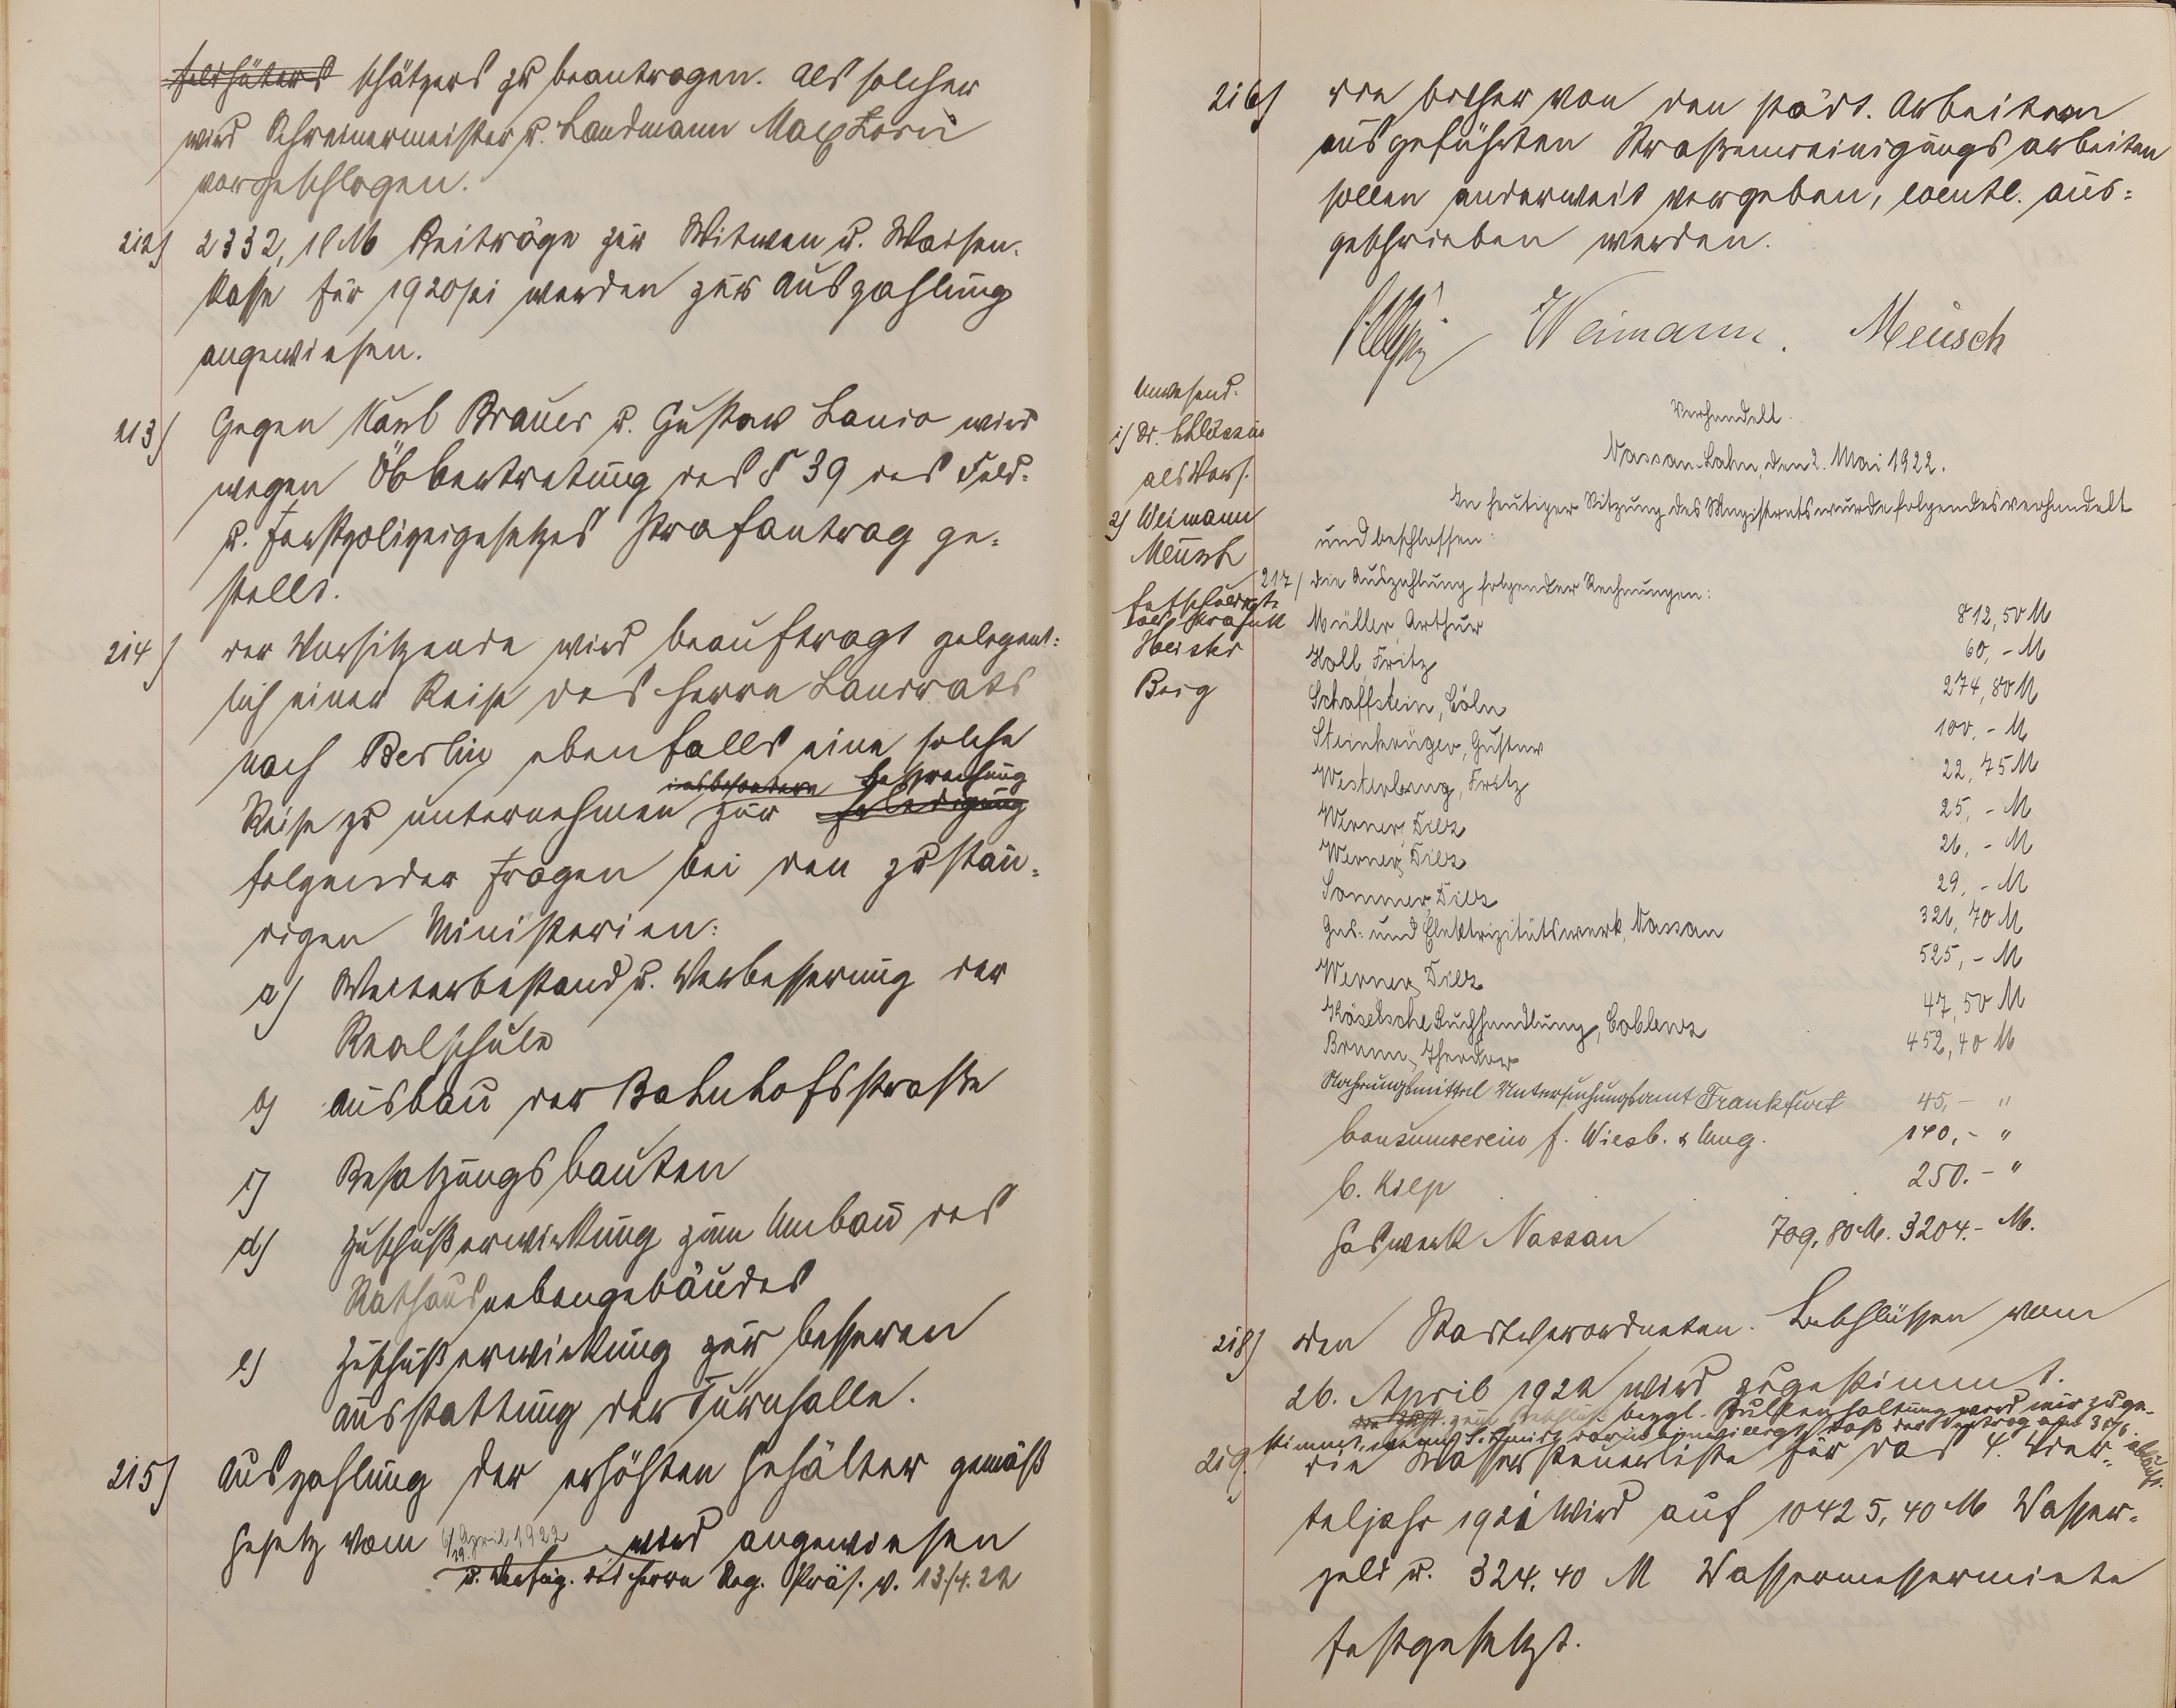 Feldhüters schätzers zu beantragen. Als solcher
wird Schreinermeister u. Landmann Max Lorii
vorgeschlagen.
212) 2332,18 M Beiträge zur Witwen u. Waisen-
kasse für 1920/21 werden zur Auszahlung
angewiesen.
213) Gegen Karl Brauer u. Gustav Lanio wird
wegen Übbertretung des § 39 des Feld-
u. Forstpolizeigesetzes Strafantrag ge-
stellt.
214) der Vorsitzende wird beauftragt gelegent-
lich einer Reise des Herrn Landrats
nach Berlin ebenfalls eine solche
insbesondere Besprechung
Reise zu unternehmen zur Erledigung
folgender Fragen bei den zustän-
digen Ministerien:
a) Weiterbestand u. Verbesserung der
Realschule
b) Ausbau der Bahnhofsstraße
c) Besatzungsbauten
d) Zuschußerwirkung zum Umbau des
Rathausnebengebäudes
e) Zuschußerwirkung zur besseren
Ausstattung der Turnhalle.
215) Auszahlung der erhöhten Gehälter gemäß
Gesetz vom 6/ April 1922 wird angewiesen
19.
u. Verfüg. des Herrn Reg. Präs. v. 13./4.22
216) die bisher von den städt. Arbeitern
ausgeführten Straßenreinigungsarbeiten
sollen anderweit vergeben, eventl. aus-
geschrieben werden.
Weimann. Meusch
Anwesend:
1) Dr.
als Vors.
2) Weimann
Meusch
Entschuldigt
Heister
Berg
Verhandelt.
Nassau-Lahn, den 2. Mai 1922.
In heutiger Sitzung des Magistrats wurde folgendes verhandelt
und beschlossen:
217/ die Auszahlung folgender Rechnungen:
Müller, Arthur 812,50 M
Holl, Fritz 60,- M
Schaffstein, Cöln 274,80 M
Steinkrüger, Gustav 100,- M
Westerburg, Fritz 22,75 M
Werner, Diez 25,- M
Werner, Diez 26,- M
Sommer, Diez 29,- M
Gas- und Elektrizitätswerk, Nassau 326,70 M
Werner, Diez 525,- M
Kösel'sche Buchhandlung, Coblenz 47,50 M
Brumm, Theodor 452,40 M
Nahrungsmittel Untersuchungsamt Frankfurt 45,- "
Consumverein f. Wiesb. & Umg. 140,- "
C. Kilp 250.- "
Gaswerk Nassau 709,80 M. 3204.- M.
218) den Stadtverordneten-Beschlüssen vom
26. April 1922 wird zugestimmt.
zum Beschluß bezgl. Bullenhaltung wird nur zuge-
stimmt, wenn darin einwilligt, daß der Vertrag am 30/6. abläuft.
219) die Wassersteuerliste für das 4. Vier-
teljahr 1921 wird auf 10425,40 M Wasser-
geld u. 324.40 M Wassermessermiete
festgesetzt.